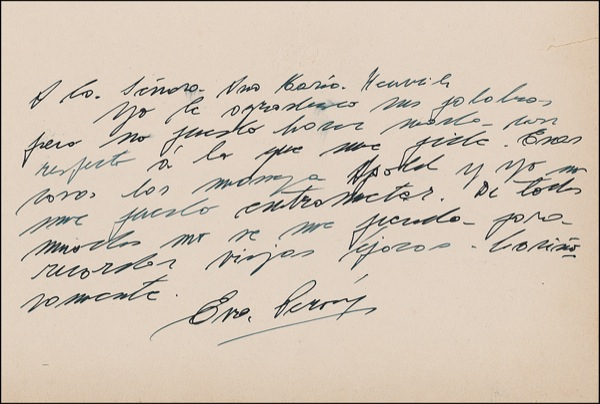 A la. Señora. Ana María. Heurich
Yo le agradezco sus palabras
pero no puedo hacer nada con
respecto á la que me pide. Esas
cosas las maneja Apold y yo no
me puedo entrometer. De todos
modos no se me pierda para
recordar viejas épocas. Cariño
samente.
Eva. Perón